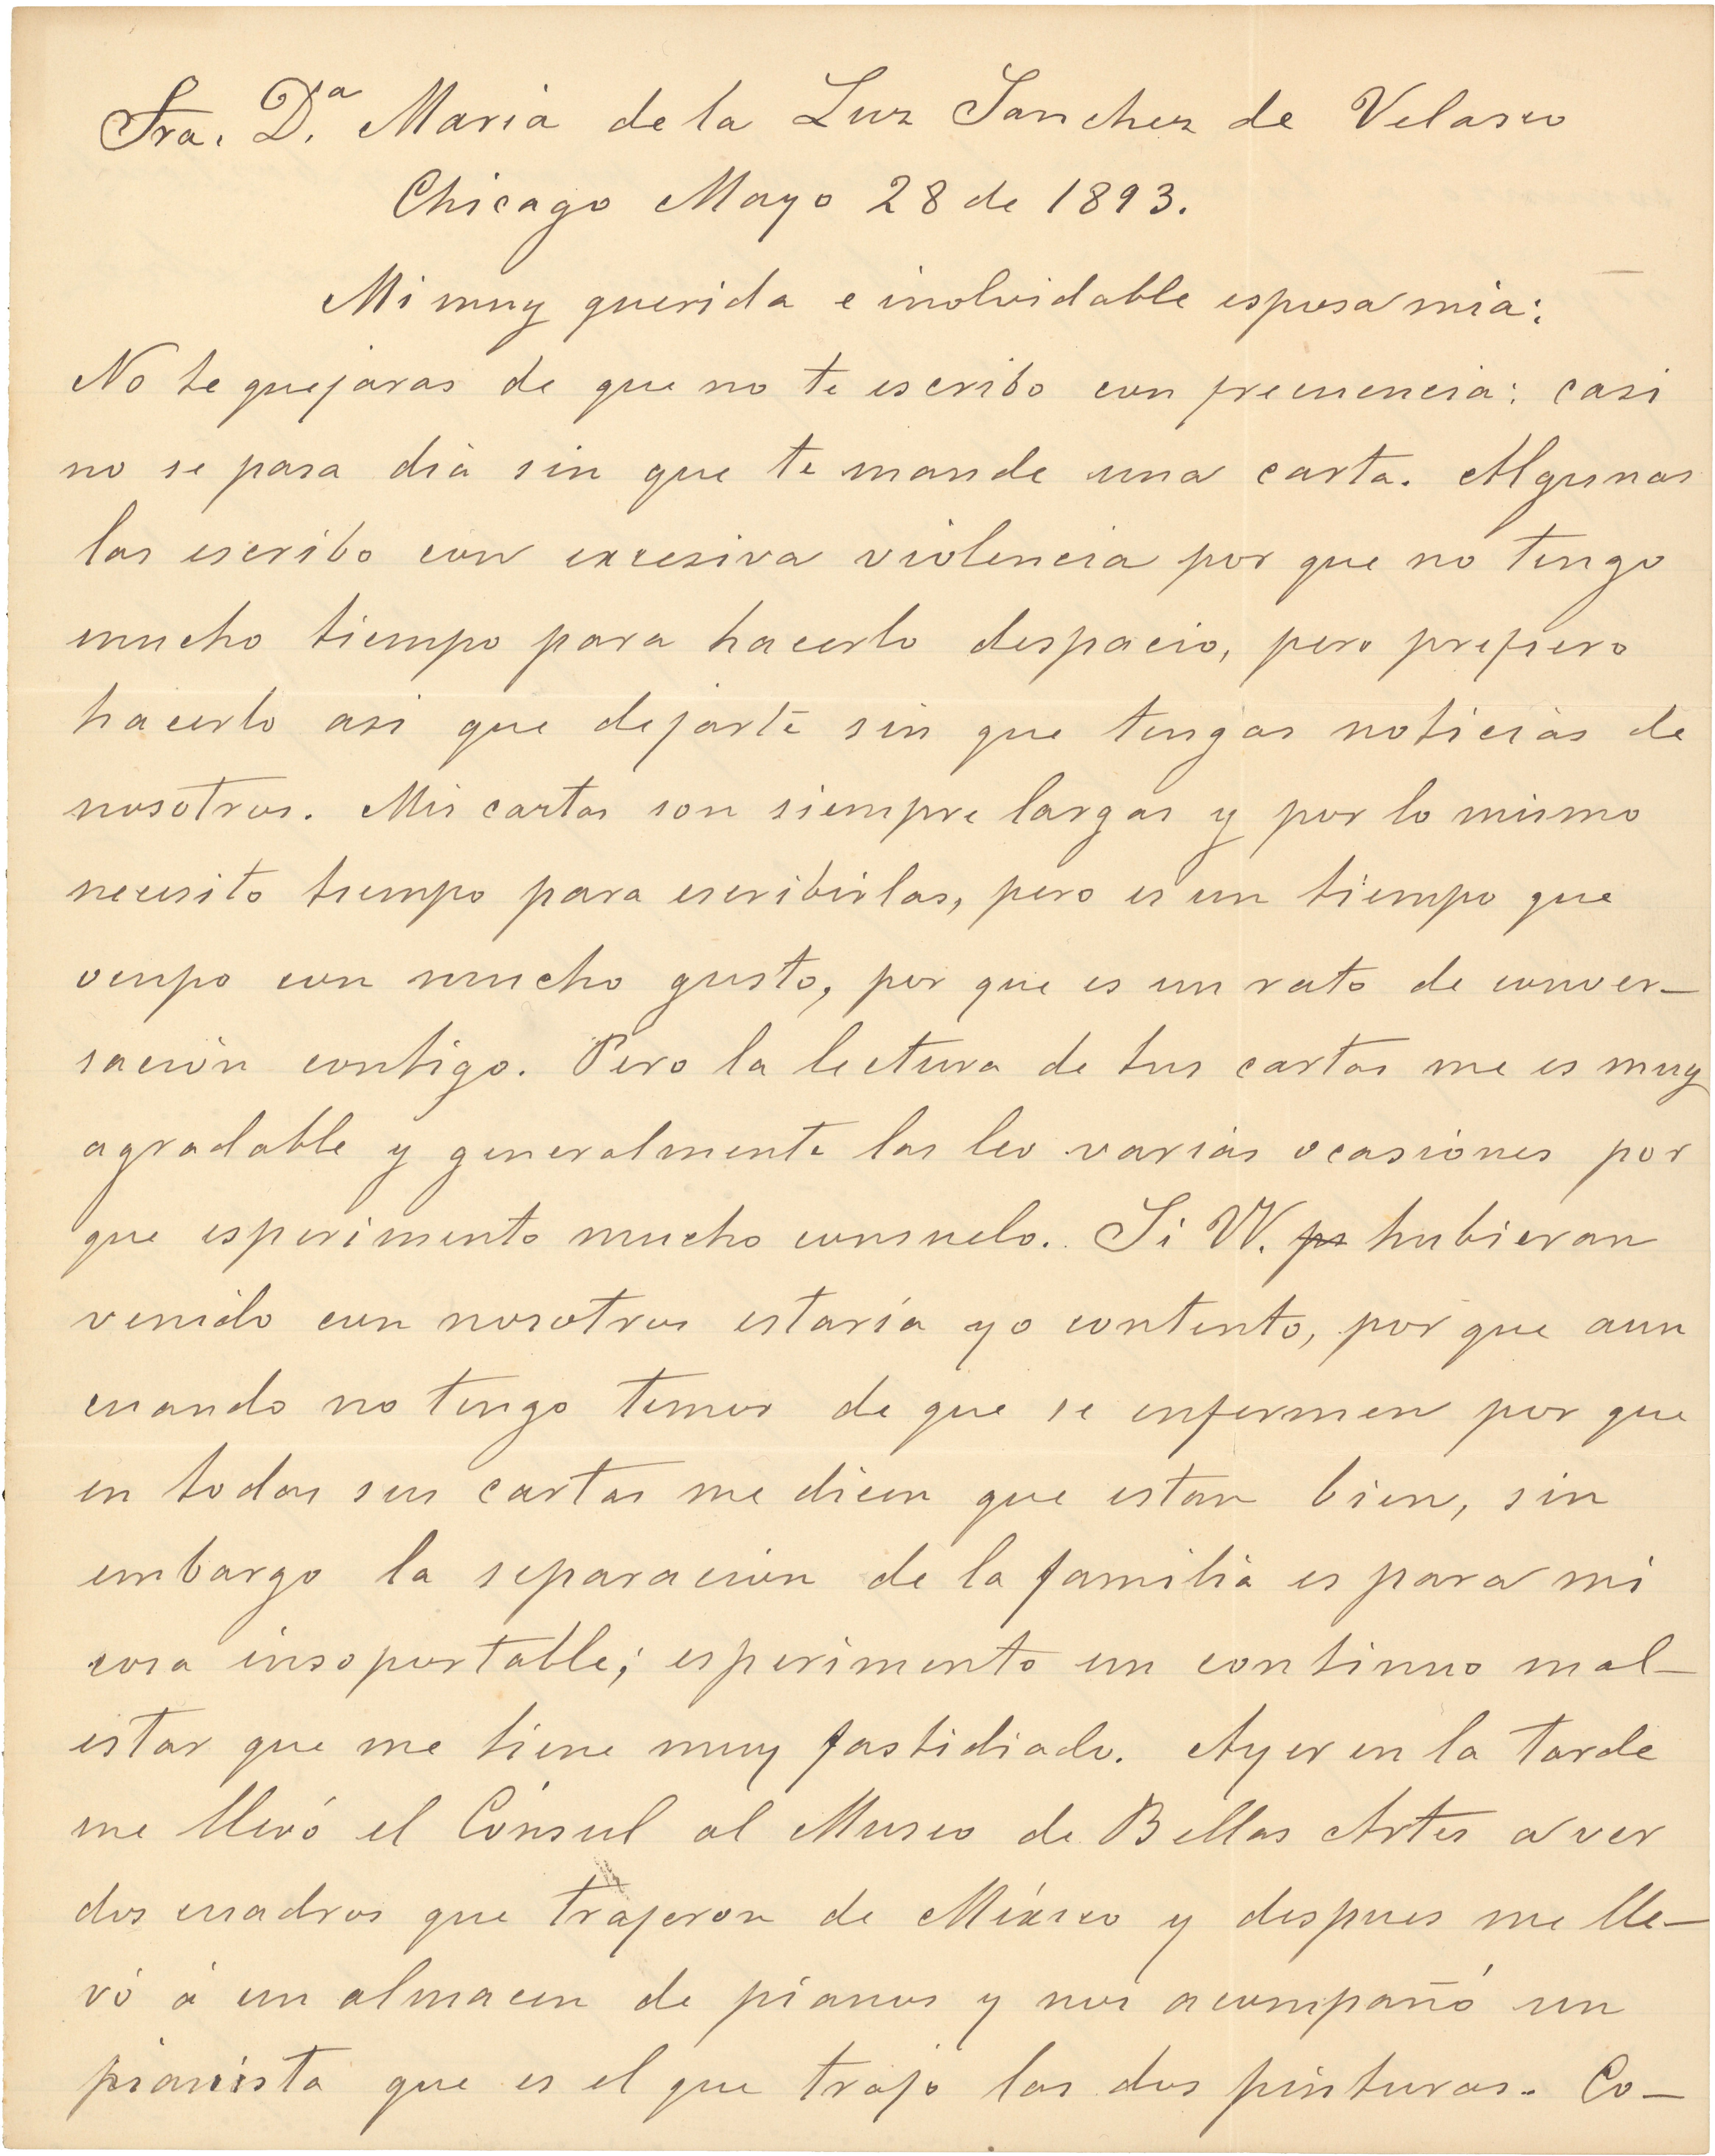 Sra. D.ª Maria de la Luz Sanchez de Velasco
Chicago Mayo 28 de 1893.
Mi muy querida e inolvidable esposa mia:
No te quejaras de que no te escribo con frecuencia: casi
no se pasa dia sin que te mande una carta. Algunas
las escribo con excesiva violencia por que no tengo
mucho tiempo para hacerlo despacio, pero prefiero
hacerlo asi que dejarte sin que tengas noticias de
nosotros. Mis cartas son siempre largas y por lo mismo
necesito tiempo para escribirlas, pero es un tiempo que
ocupo con mucho gusto, por que es un rato de conver-
sación contigo. Pero la lectura de tus cartas me es muy
agradable y generalmente las leo varias ocasiones por
que esperimento mucho consuelo. Si VV. hubieran
venido con nosotros estaría yo contento, por que aun
cuando no tengo temor de que se enfermen por que
en todas sus cartas me dicen que estan bien, sin
embargo la separacion de la familia es para mi
cosa insoportable; esperimento un continuo mal-
estar que me tiene muy fastidiado. Ayer en la tarde
me llevó el Cónsul al Museo de Bellas Artes a ver
dos cuadros que trajeron de México y despues me lle-
vó á un almacen de pianos y nos acompañó un
pianista que es el que trajo las dos pinturas. Co-